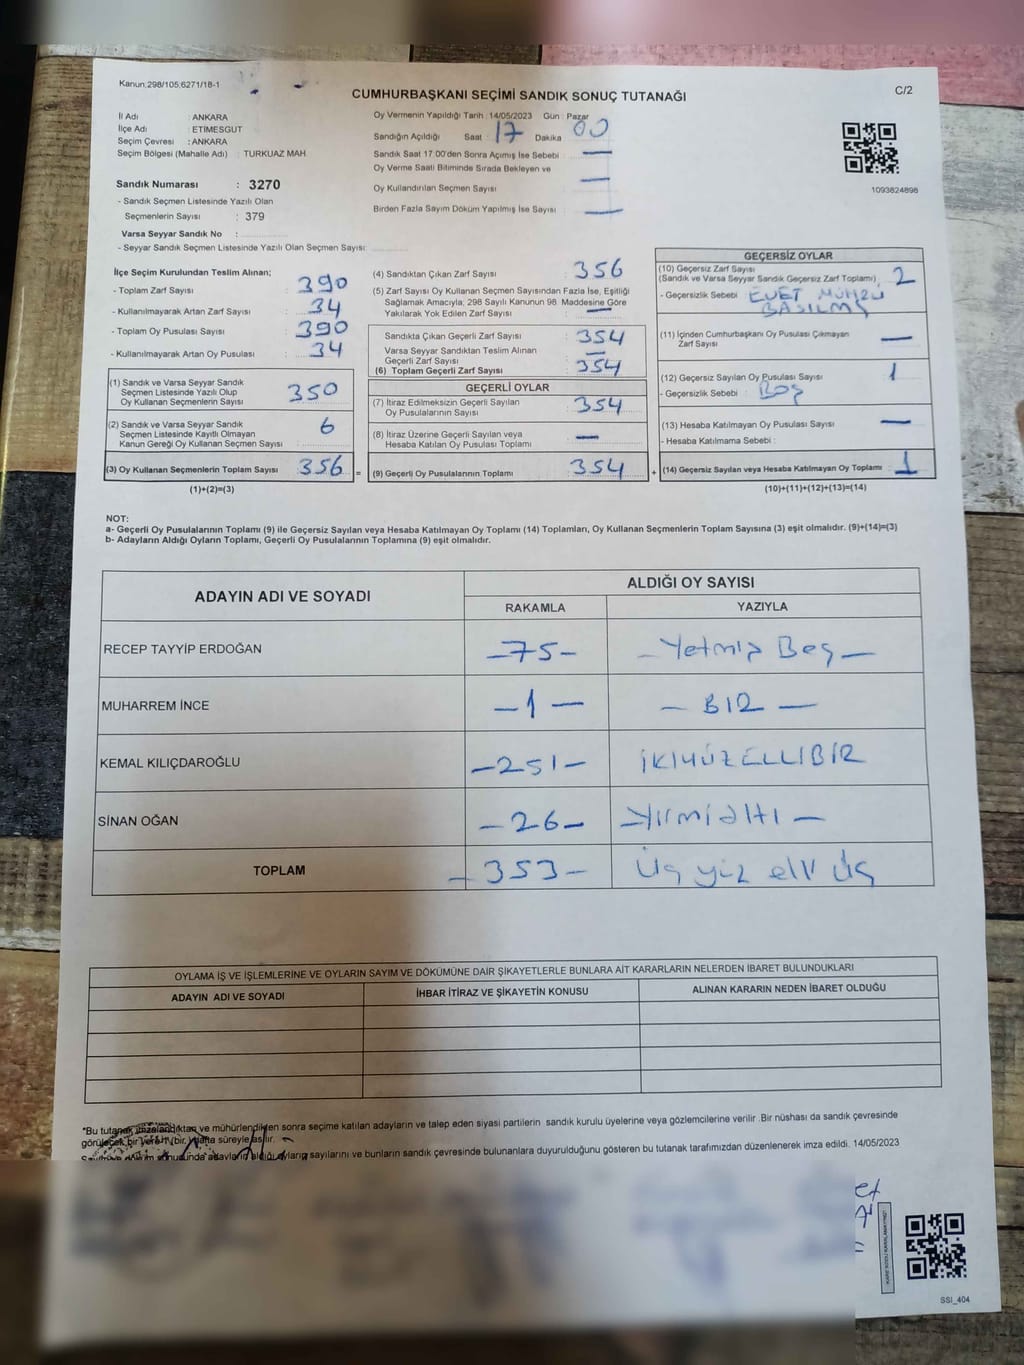 Kanun.298/105;6271/18-1
CUMHURBAŞKANI SEÇİMİ SANDIK SONUÇ TUTANAĞI
C/2
İl Adı : ANKARA
İlçe Adı : ETİMESGUT
Seçim Çevresi : ANKARA
Seçim Bölgesi (Mahalle Adı) : TURKUAZ MAH.
Sandık Numarası : 3270
- Sandık Seçmen Listesinde Yazılı Olan
Seçmenlerin Sayısı : 379
Varsa Seyyar Sandık No :
- Seyyar Sandık Seçmen Listesinde Yazılı Olan Seçmen Sayısı:
Oy Vermenin Yapıldığı Tarih : 14/05/2023 Gün : Pazar
Sandığın Açıldığı Saat : 17 Dakika : 00
Sandık Saat 17.00'den Sonra Açımış İse Sebebi : —
Oy Verme Saati Bitiminde Sırada Bekleyen ve
Oy Kullandırılan Seçmen Sayısı —
Birden Fazla Sayım Döküm Yapılmış İse Sayısı : —
1093824898
İlçe Seçim Kurulundan Teslim Alınan;
- Toplam Zarf Sayısı : 390
- Kullanılmayarak Artan Zarf Sayısı : 34
- Toplam Oy Pusulası Sayısı : 390
- Kullanılmayarak Artan Oy Pusulası : 34
(1) Sandık ve Varsa Seyyar Sandık
Seçmen Listesinde Yazılı Olup
Oy Kullanan Seçmenlerin Sayısı : 350
(2) Sandık ve Varsa Seyyar Sandık
Seçmen Listesinde Kayıtlı Olmayan
Kanun Gereği Oy Kullanan Seçmen Sayısı : 6
(3) Oy Kullanan Seçmenlerin Toplam Sayısı : 356 =
(1)+(2)=(3)
(4) Sandıktan Çıkan Zarf Sayısı : 356
(5) Zarf Sayısı Oy Kullanan Seçmen Sayısından Fazla İse, Eşitliği
Sağlamak Amacıyla, 298 Sayılı Kanunun 98. Maddesine Göre
Yakılarak Yok Edilen Zarf Sayısı : —
Sandıkta Çıkan Geçerli Zarf Sayısı : 354
Varsa Seyyar Sandıktan Teslim Alınan
Geçerli Zarf Sayısı : —
(6) Toplam Geçerli Zarf Sayısı : 354
GEÇERLİ OYLAR
(7) İtiraz Edilmeksizin Geçerli Sayılan
Oy Pusulalarının Sayısı : 354
(8) İtiraz Üzerine Geçerli Sayılan veya
Hesaba Katılan Oy Pusulası Toplamı : —
(9) Geçerli Oy Pusulalarının Toplamı : 354 +
GEÇERSİZ OYLAR
(10) Geçersiz Zarf Sayısı
(Sandık ve Varsa Seyyar Sandık Geçersiz Zarf Toplamı) : 2
- Geçersizlik Sebebi : EVET MÜHRÜ
BASILMIŞ
(11) İçinden Cumhurbaşkanı Oy Pusulası Çıkmayan
Zarf Sayısı : —
(12) Geçersiz Sayılan Oy Pusulası Sayısı : 1
- Geçersizlik Sebebi : Boş
(13) Hesaba Katılmayan Oy Pusulası Sayısı : —
- Hesaba Katılmama Sebebi :
(14) Geçersiz Sayılan veya Hesaba Katılmayan Oy Toplamı : 1
(10)+(11)+(12)+(13)=(14)
NOT:
a- Geçerli Oy Pusulalarının Toplamı (9) ile Geçersiz Sayılan veya Hesaba Katılmayan Oy Toplamı (14) Toplamları, Oy Kullanan Seçmenlerin Toplam Sayısına (3) eşit olmalıdır. (9)+(14)=(3)
b- Adayların Aldığı Oyların Toplamı, Geçerli Oy Pusulalarının Toplamına (9) eşit olmalıdır.
ADAYIN ADI VE SOYADI
ALDIĞI OY SAYISI
RAKAMLA YAZIYLA
RECEP TAYYİP ERDOĞAN –75– – Yetmiş Beş –
MUHARREM İNCE –1– – BİR –
KEMAL KILIÇDAROĞLU –251– İKİYÜZELLİBİR
SİNAN OĞAN –26– – Yirmialtı –
TOPLAM –353– Üç yüz elli üç
OYLAMA İŞ VE İŞLEMLERİNE VE OYLARIN SAYIM VE DÖKÜMÜNE DAİR ŞİKAYETLERLE BUNLARA AİT KARARLARIN NELERDEN İBARET BULUNDUKLARI
ADAYIN ADI VE SOYADI İHBAR İTİRAZ VE ŞİKAYETİN KONUSU ALINAN KARARIN NEDEN İBARET OLDUĞU
*Bu tutanak imzalandıktan ve mühürlendikten sonra seçime katılan adayların ve talep eden siyasi partilerin sandık kurulu üyelerine veya gözlemcilerine verilir .Bir nüshası da sandık çevresinde
görülecek bir yere 1 (bir) hafta süreyle asılır.
sonucunda adayların aldığı oyların sayılarını ve bunların sandık çevresinde bulunanlara duyurulduğunu gösteren bu tutanak tarafımızdan düzenlenerek imza edildi. 14/05/2023
SSI_404